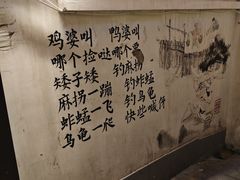 鸡婆叫 鸭婆叫
哪个捡哒 哪个
矮子矮 钓麻拐
麻拐一蹦 钓蚱蜢
蚱蜢一飞 钓乌龟
乌龟一爬 快些喊